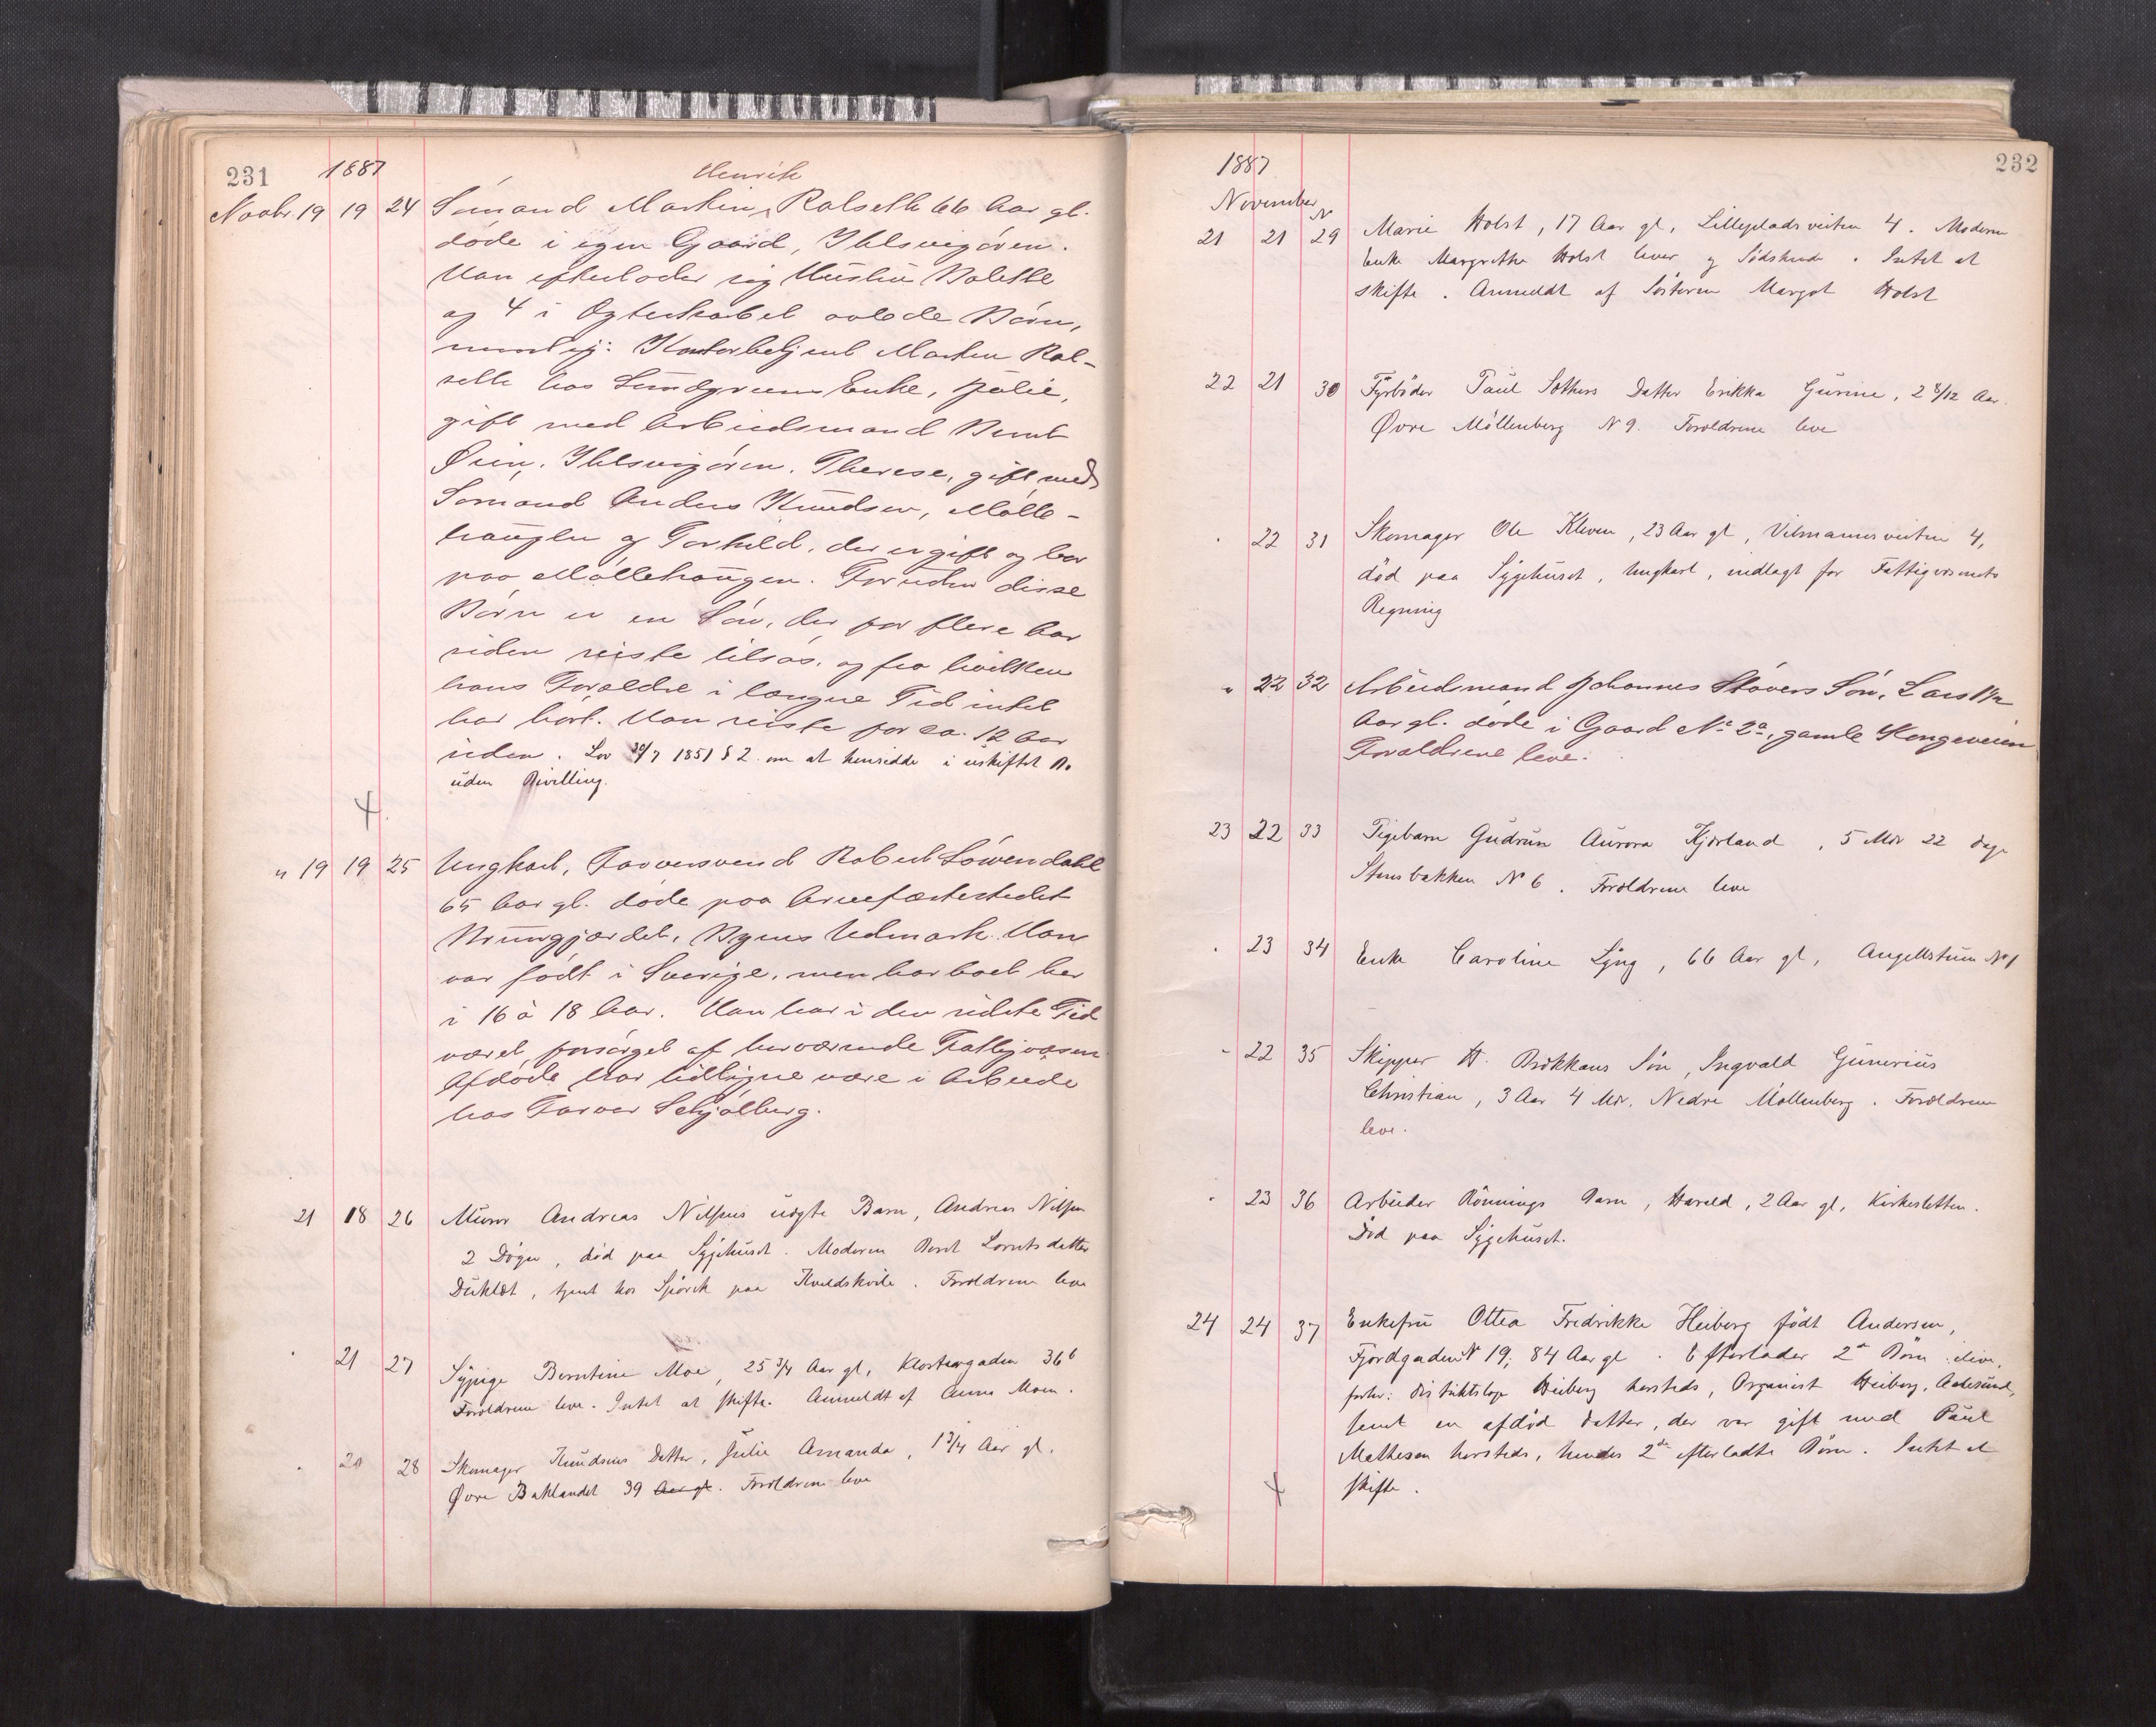 231 1887
Henrik
Novbr. 19 19 24 Sømand Martin Ralseth 66 Aar gl.
døde i egen Gaard, Ihlsvigøren.
Han efterlader sig Hustru
og 4 i Ægteskabet avlede Børn,
nemlig: Kontorbetjent Martin Ral-
seth hos Lundgreens Enke, Julie,
gift med Arbeidsmand Bernt
Øien, Ihlsvigøren. Therese, gift med
Sømand Anders Knudsen, Mølle-
haugen og Torhild, der er gift og bor
paa Møllehaugen. Foruden disse
Børn er en Søn, der for flere Aar
siden reiste tilsøs, og fra hvilken
hans Forældre i længre Tid intet
har hørt. Han reiste for ca. 12 Aar
siden. Lov 30/7 1851 § 2 om at hensidde i uskiftet Bo
uden Bevilling.
" 19 19 25 Ungkarl, Farversvend Robert Löwendahl
65 Aar gl. døde paa Arvefæstestedet
Bynes Udmark. Han
var født i Sverige, men har boet her
i 16 à 18 Aar. Han har i den sidste Tid
været forsørget af herværende Fattigvæsen.
Afdøde skal tidligere være i Arbeide
hos Farver Schjølberg.
21 18 26 Murer Andreas Nilsens uægte Barn, Andreas Nilsen
2 Døgn, død paa Sygehuset. Moderen Beret Lorntsdatter
tjent hos Spørck paa Kveldskvile. Forældrene leve
" 21 27 Sypige Berntine Moe, 25 3/4 Aar gl, Klostergaden 36 b
Forældrene leve. Intet at skifte. Anmeldt af Anna Moen.
" 20 28 Skomager Knudsens Datter, Julie Amanda, 1 3/4 Aar gl.
Øvre Baklandet 39 Aar gl. Forældrene leve
1887 232
November
21 21 N 29 Marie Holst, 17 Aar gl, Lilleplads veiten 4. Moderen
Enke Margrethe Holst lever og Södskende. Intet at
skifte. Anmeldt af Søsteren Margot Holst
22 21 30 Fyrbøder Paul Sothers Datter Erikka Gurine, 2 8/12 Aar.
Øvre Møllenberg N 9. Forældrene leve
" 22 31 Skomager Ole Kleven, 23 Aar gl, Vilmannsveiten 4,
død paa Sygehuset, Ungkarl, indlagt for Fattigvæsenets
Regning
" 22 32 Arbeidsmand Johannes Støvers Søn, Lars
Aar gl. døde i Gaard No 2a, gamle Kongeveien
Forældrene leve.
23 22 33 Pigebarn Gudrun Aurora Kjørland, 5 Mdr 22 dage
Stensbakken No 6. Forældrene leve
" 23 34 Enke Caroline Lyng, 66 Aar gl, Angelltrøen No 1
" 22 35 Skipper H. Brækkans Søn, Ingvald Gunerius
Christian, 3 Aar 4 Mdr. Nedre Møllenberg. Forældrene
leve.
" 23 36 Arbeider Rønnings Barn, Harald, 2 Aar gl, Kirkesletten.
Død paa Sygehuset.
24 24 37 Enkefru Ottea Fredrikke Heiberg født Andersen,
Fjordgaden N 19, 84 Aar gl. Efterlader 2de Børn ilive,
Distriktslæge Heiberg hersteds, Organist Heiberg, Aalesund,
samt en afdød Datter, der var gift med Paul
Mathesen hersteds, hendes 2de efterladte Børn. Intet at
skifte.